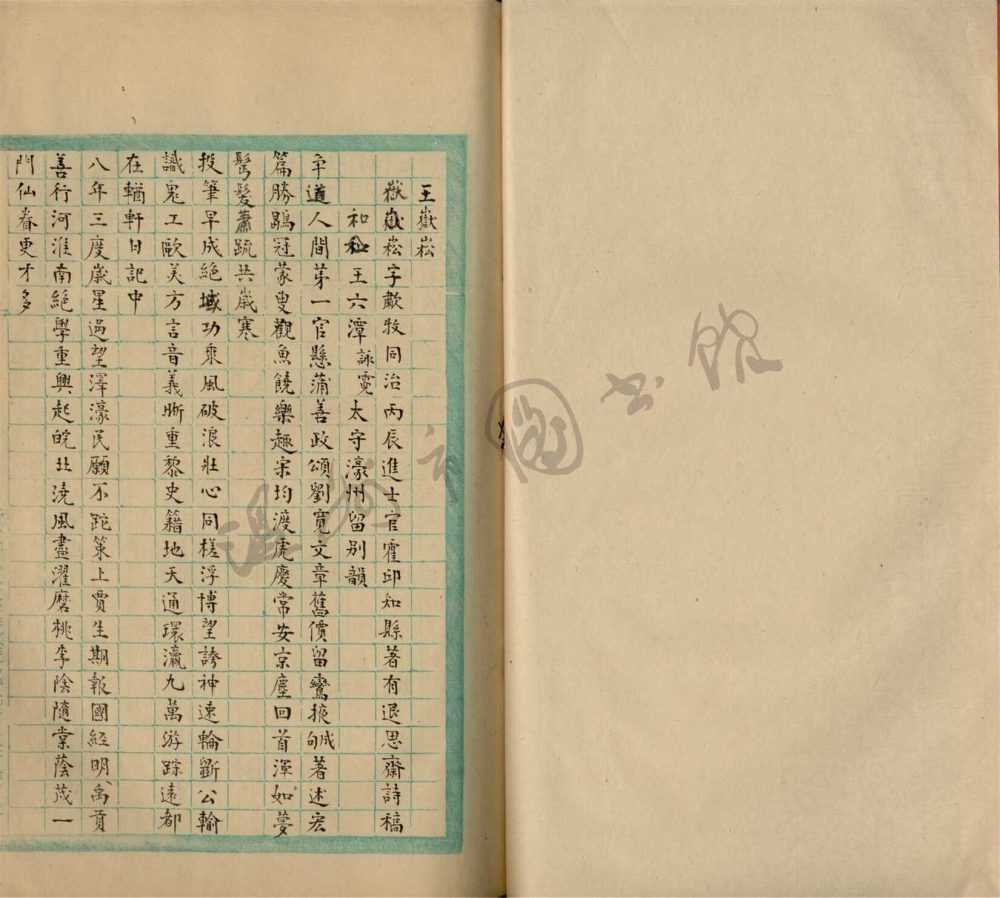 王嶽崧
嶽嶽崧字歗牧同治丙辰進士官霍邱知縣著有退思齋詩稿
和和王六潭詠霓太守濠州留别韻
争道人間苐一官懸蒲善政頌劉寛文章舊價留鸞掖碱著述宏
篇勝鶡冠蒙叟觀魚饒樂趣宋均渡虎慶常安京塵回首渾如夢
髩髮蕭疏共歲寒
投筆早成絶域功乘風破浪壯心同槎浮博望誇神速輪斵公輸
識鬼工歐美方言音義晰重黎史籍地天通環瀛九萬游踪遠都
在輶軒日記中
八年三度歲星過望澤濠民願不跎策上賈生期報國經明禹貢
善行河淮南絶學重興起皖北澆風盡濯磨桃李陰隨棠蔭茂一
門仙眷更才多
圖書館